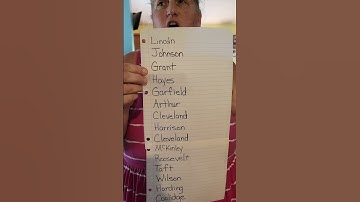 • Lincoln
Johnson
Grant
Hayes
• Garfield
Arthur
Cleveland
Harrison
• Cleveland
• McKinley
Roosevelt
Taft
Wilson
• Harding
Coolidge